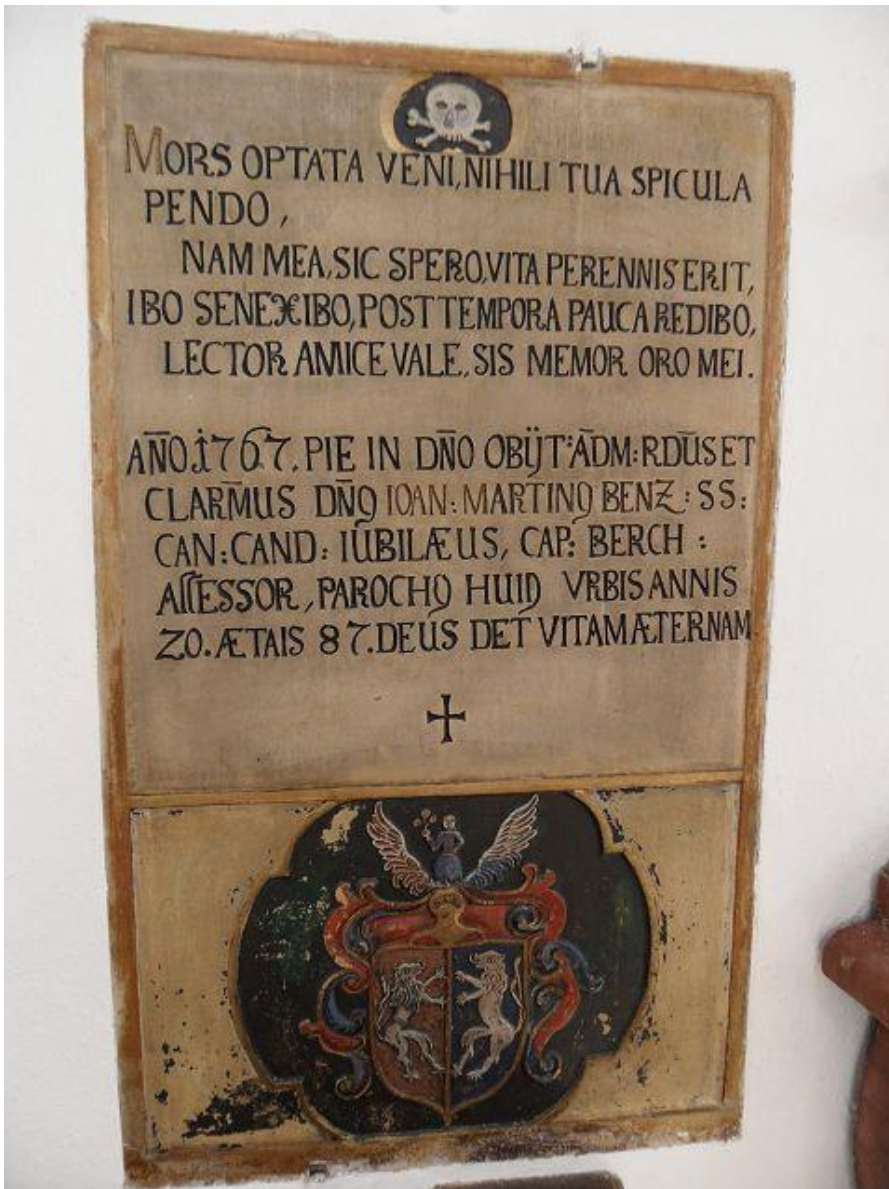 MORS OPTATA VENI, NIHILI TUA SPICULA
PENDO,
NAM MEA, SIC SPERO, VITA PERENNIS ERIT,
IBO SENEX IBO, POST TEMPORA PAUCA REDIBO,
LECTOR AMICE VALE, SIS MEMOR ORO MEI.
AÑO. 1767. PIE IN DÑO OBIJT: ADM: RDUS ET
CLARMUS DÑ9 IOAN: MARTIN9 BENZ: SS:
CAN: CAND: IUBILÆUS, CAP: BERCH:
ASSESSOR, PAROCH9 HUI9 VRBIS ANNIS
20. ÆTAIS 87. DEUS DET VITAM ÆTERNAM